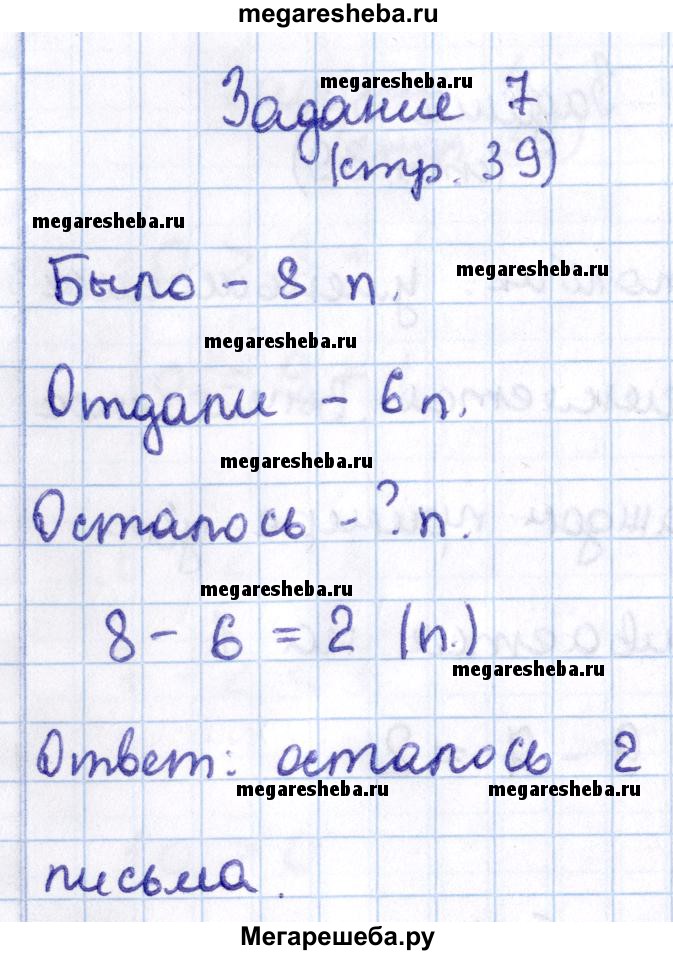 megaresheba.ru
megaresheba.ru
Задание 7
(стр. 39)
megaresheba.ru
Было - 8 п.
megaresheba.ru
megaresheba.ru
Отдали - 6 п.
megaresheba.ru
Осталось - ? п.
megaresheba.ru
8 - 6 = 2 (п.)
megaresheba.ru
Ответ: осталось 2
megaresheba.ru megaresheba.ru
письма.
Мегарешеба.ру